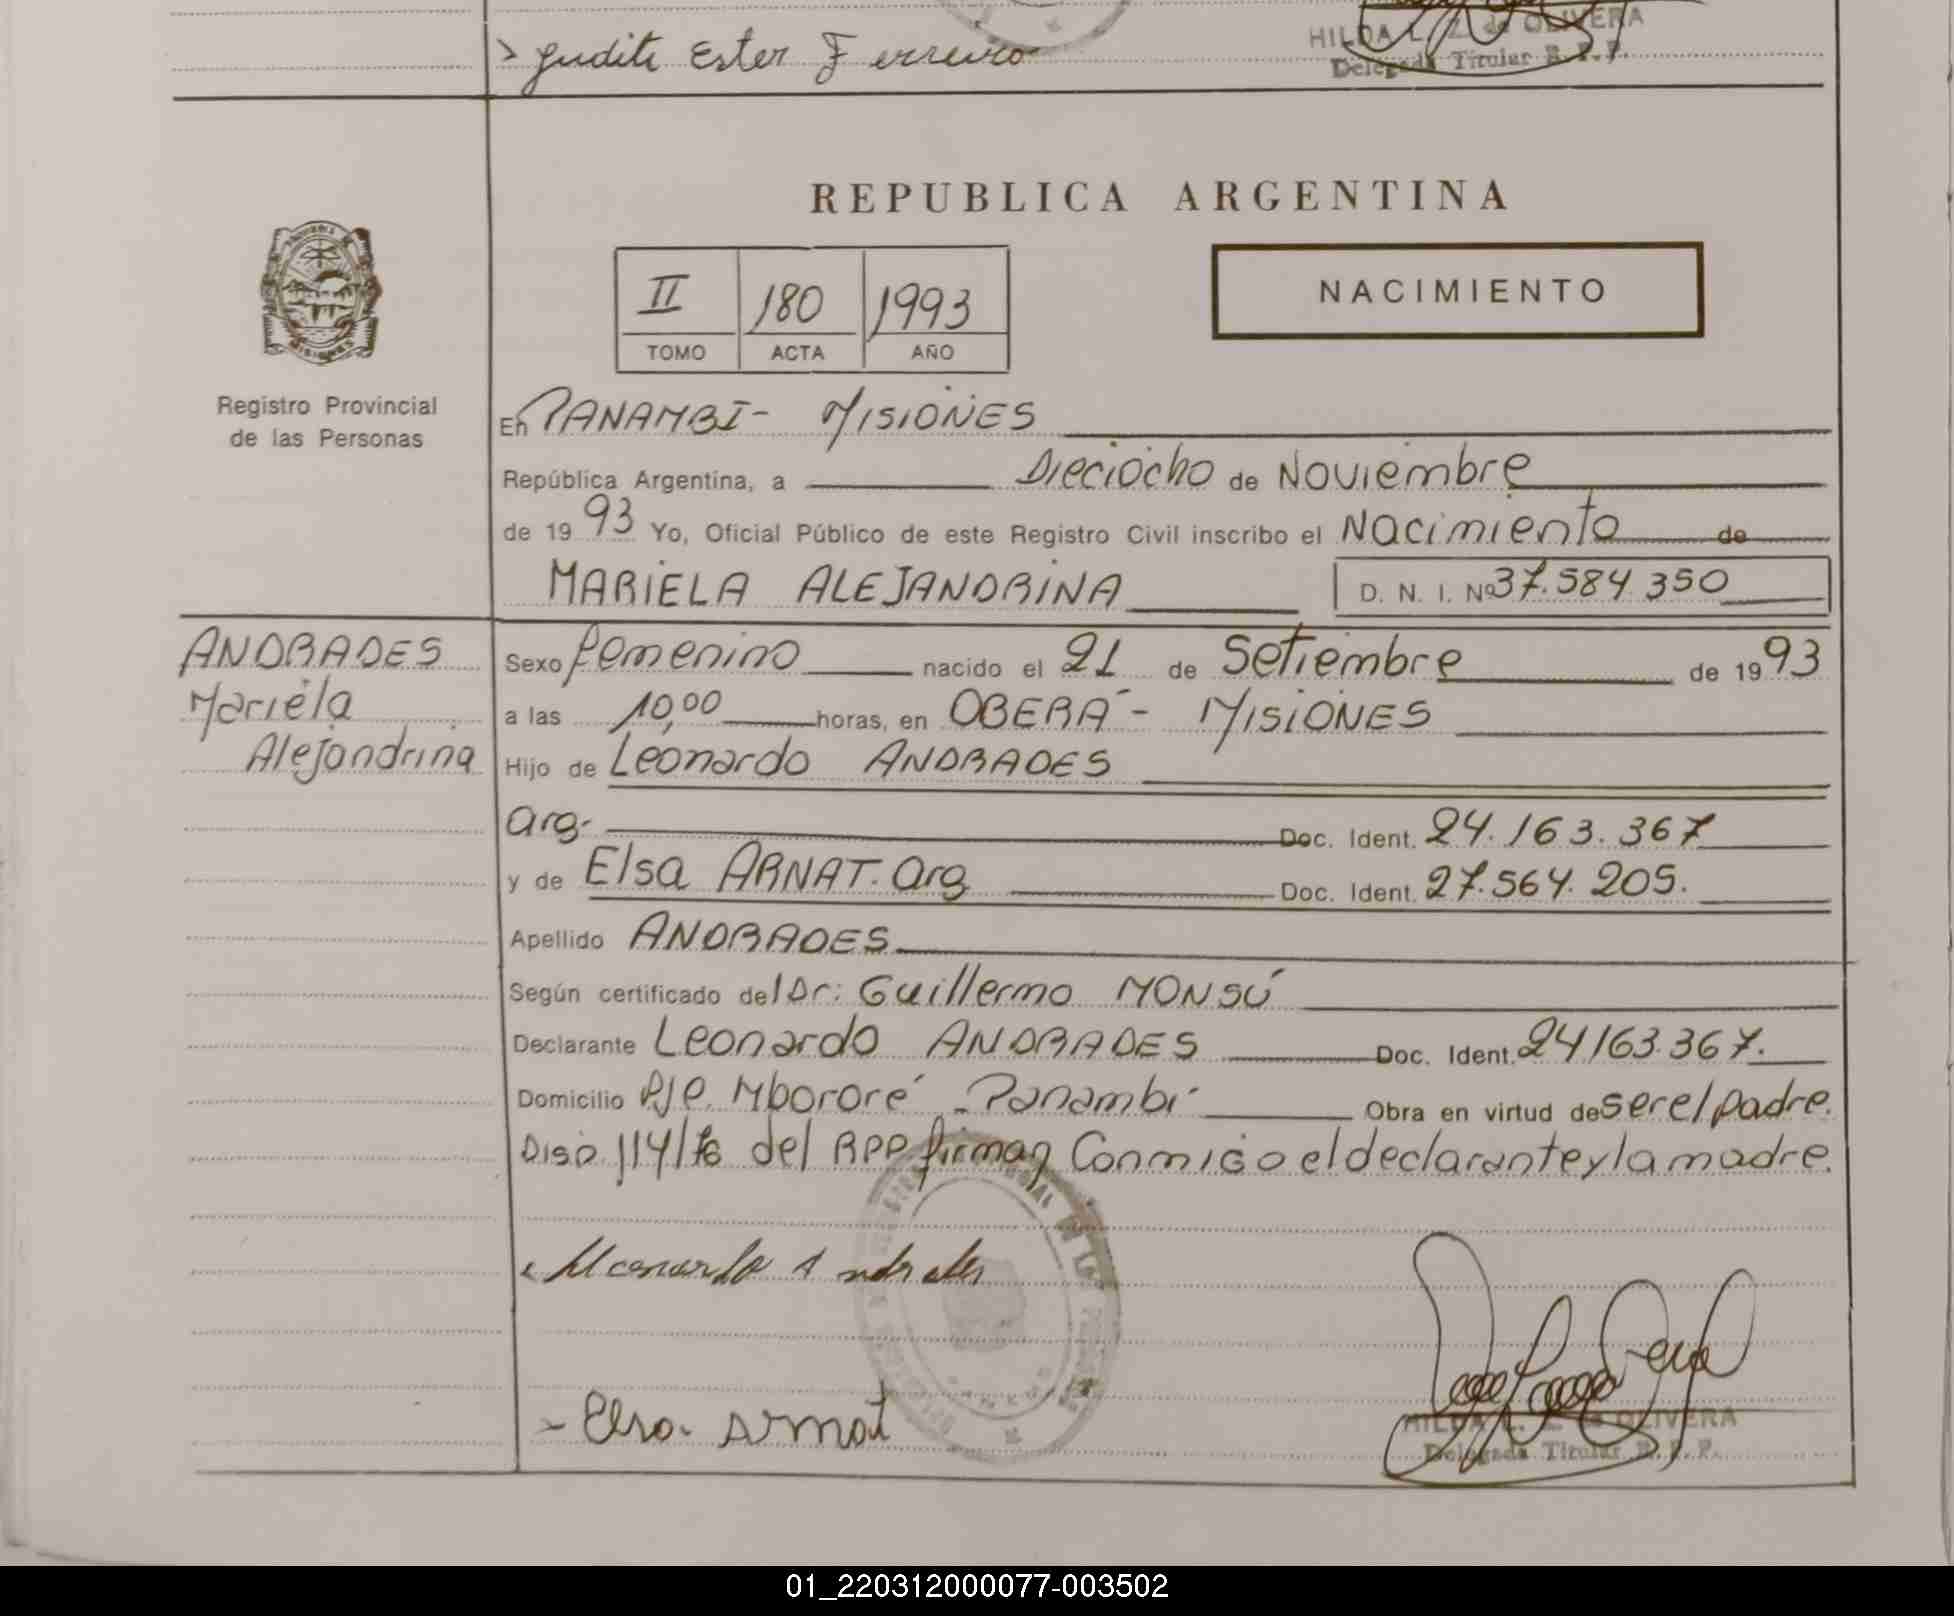 > Judite Ester Ferreiro
HILDA L. Z. de OLIVERA
Delegada Titular R. P. P.
REPUBLICA ARGENTINA
II 180 1993
TOMO ACTA AÑO
NACIMIENTO
MISIONES
Registro Provincial
de las Personas
En PANAMBI- MISIONES
República Argentina, a Dieciocho de Noviembre
de 1993 Yo, Oficial Público de este Registro Civil inscribo el Nacimiento de
MARIELA ALEJANDRINA D. N. I. Nº 37.584.350
ANDRADES
Mariela
Alejandrina
Sexo femenino nacido el 21 de Setiembre de 1993
a las 10,00 horas, en OBERÁ - MISIONES
Hijo de Leonardo ANDRADES
Arg. Doc. Ident. 24.163.367
y de Elsa ARNAT. Arg Doc. Ident. 27.564.205.
Apellido ANDRADES
Según certificado del Dr: Guillermo MONSÚ
Declarante Leonardo ANDRADES Doc. Ident. 24163.367.
Domicilio Pje. Mbororé - Panambí Obra en virtud de ser el padre.
Disp. 114/76 del RPP firman Conmigo el declarante y la madre.
Leonardo Andrades
- Elsa Arnat
HILDA L. Z. de OLIVERA
Delegada Titular R. P. P.
01_220312000077-003502